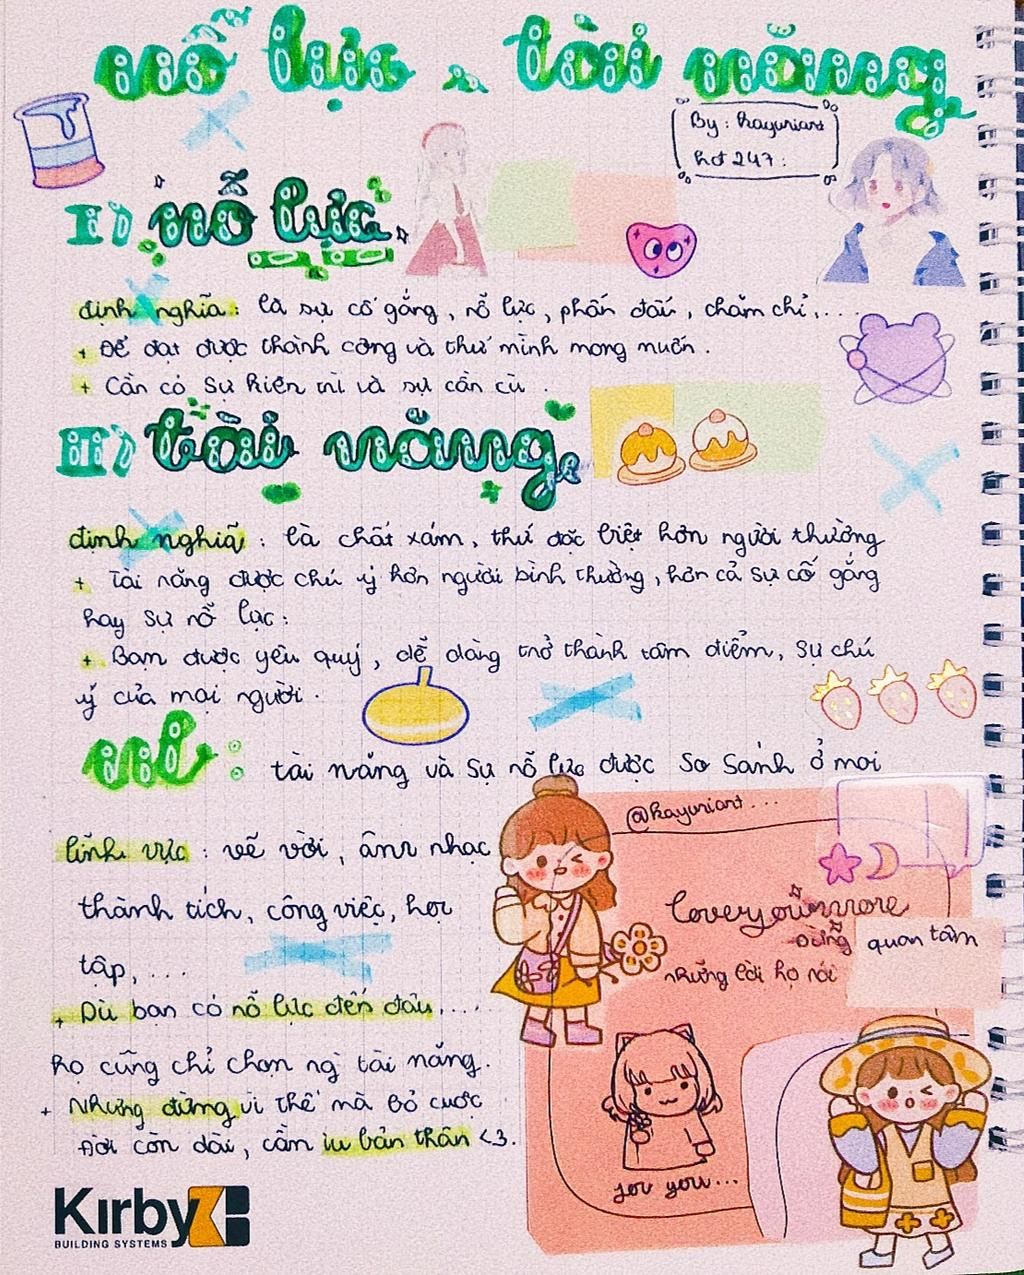 nỗ lực & tài năng
By: kayuriart
hd 247:
I) nỗ lực
định nghĩa: là sự cố gắng, nỗ lực, phấn đấu, chăm chỉ,...
+ Để đạt được thành công và thứ mình mong muốn.
+ Cần có sự kiên trì và sự cần cù.
II) tài năng
định nghĩa: là chất xám, thứ đặc biệt hơn người thường
+ Tài năng được chú ý hơn người bình thường, hơn cả sự cố gắng
hay sự nỗ lực:
+ Bạn được yêu quý, dễ dàng trở thành tâm điểm, sự chú
ý của mọi người.
: tài năng và sự nỗ lực được so sánh ở mọi
lĩnh vực: vẽ vời, âm nhạc
thành tích, công việc, học
tập,...
+ Dù bạn có nỗ lực đến đâu....
họ cũng chỉ chọn ng` tài năng.
+ Nhưng đừng vì thế mà bỏ cuộc
Đời còn dài, cần iu bản thân <3.
@kayuriart...
loveyoumore
Đừng quan tâm
những lời họ nói
for you...
Kirby
BUILDING SYSTEMS